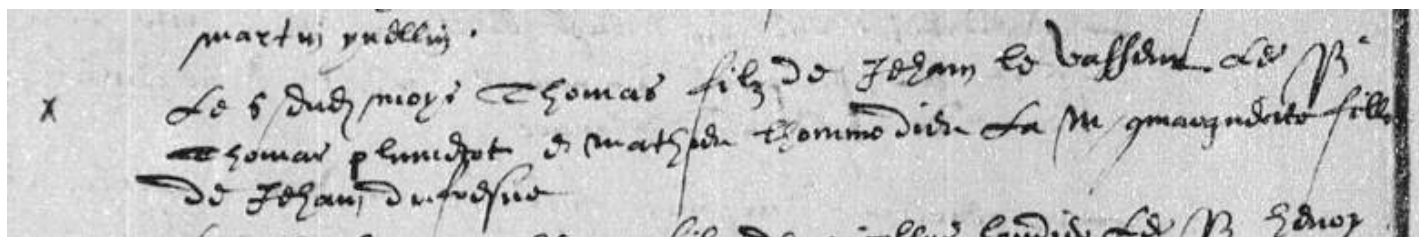 martin
Le 5 dud moys Thomas filz de Jehan le Vasseur Les P
Thomas plumdot et mathieu thommodieu La M marguerite fille
de Jehan dufresne
filz de Les P